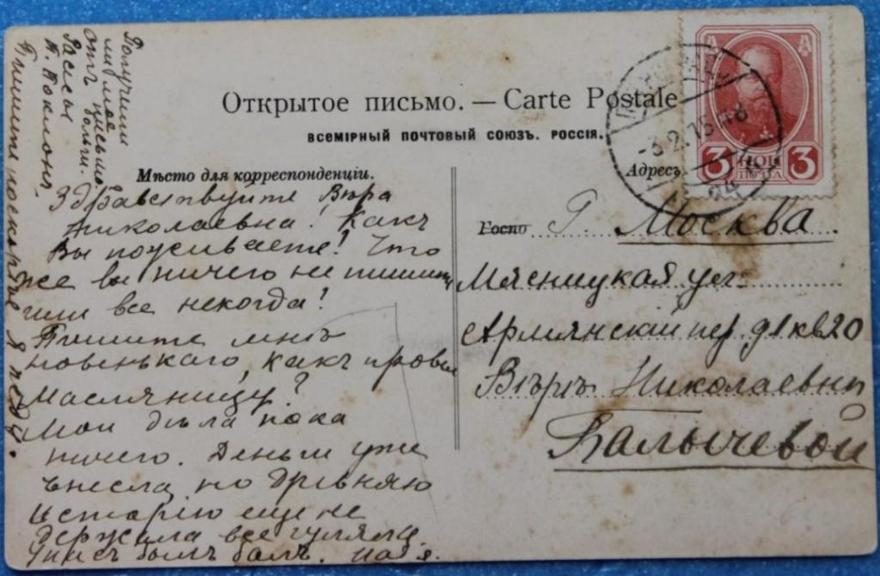 Открытое письмо. — Carte Postale
ВСЕМІРНЫЙ ПОЧТОВЫЙ СОЮЗЪ. РОССІЯ.
Мѣсто для корреспонденціи.
Адресъ
3 КОП ПОЧТА 3
-3.2.15
Здравствуйте Вѣра
Николаевна! Какъ
Вы поживаете! Что
же вы ничего не пишите
или все некогда!
Пишите мнѣ
новенькаго, какъ провели
масляницу?
Мои дѣла пока
ничего. Деньги уже
внесла, но древнюю
исторію еще не
держала все гуляла
у насъ былъ балъ. Надя.
Получили
ли мое
письмо
отъ
Пишите поскорѣе я жду.
Госпо Г. Москва
Мясницкая ул.
Армянскій пер д 1 кв 20
Вѣрѣ Николаевнѣ
Балычевой